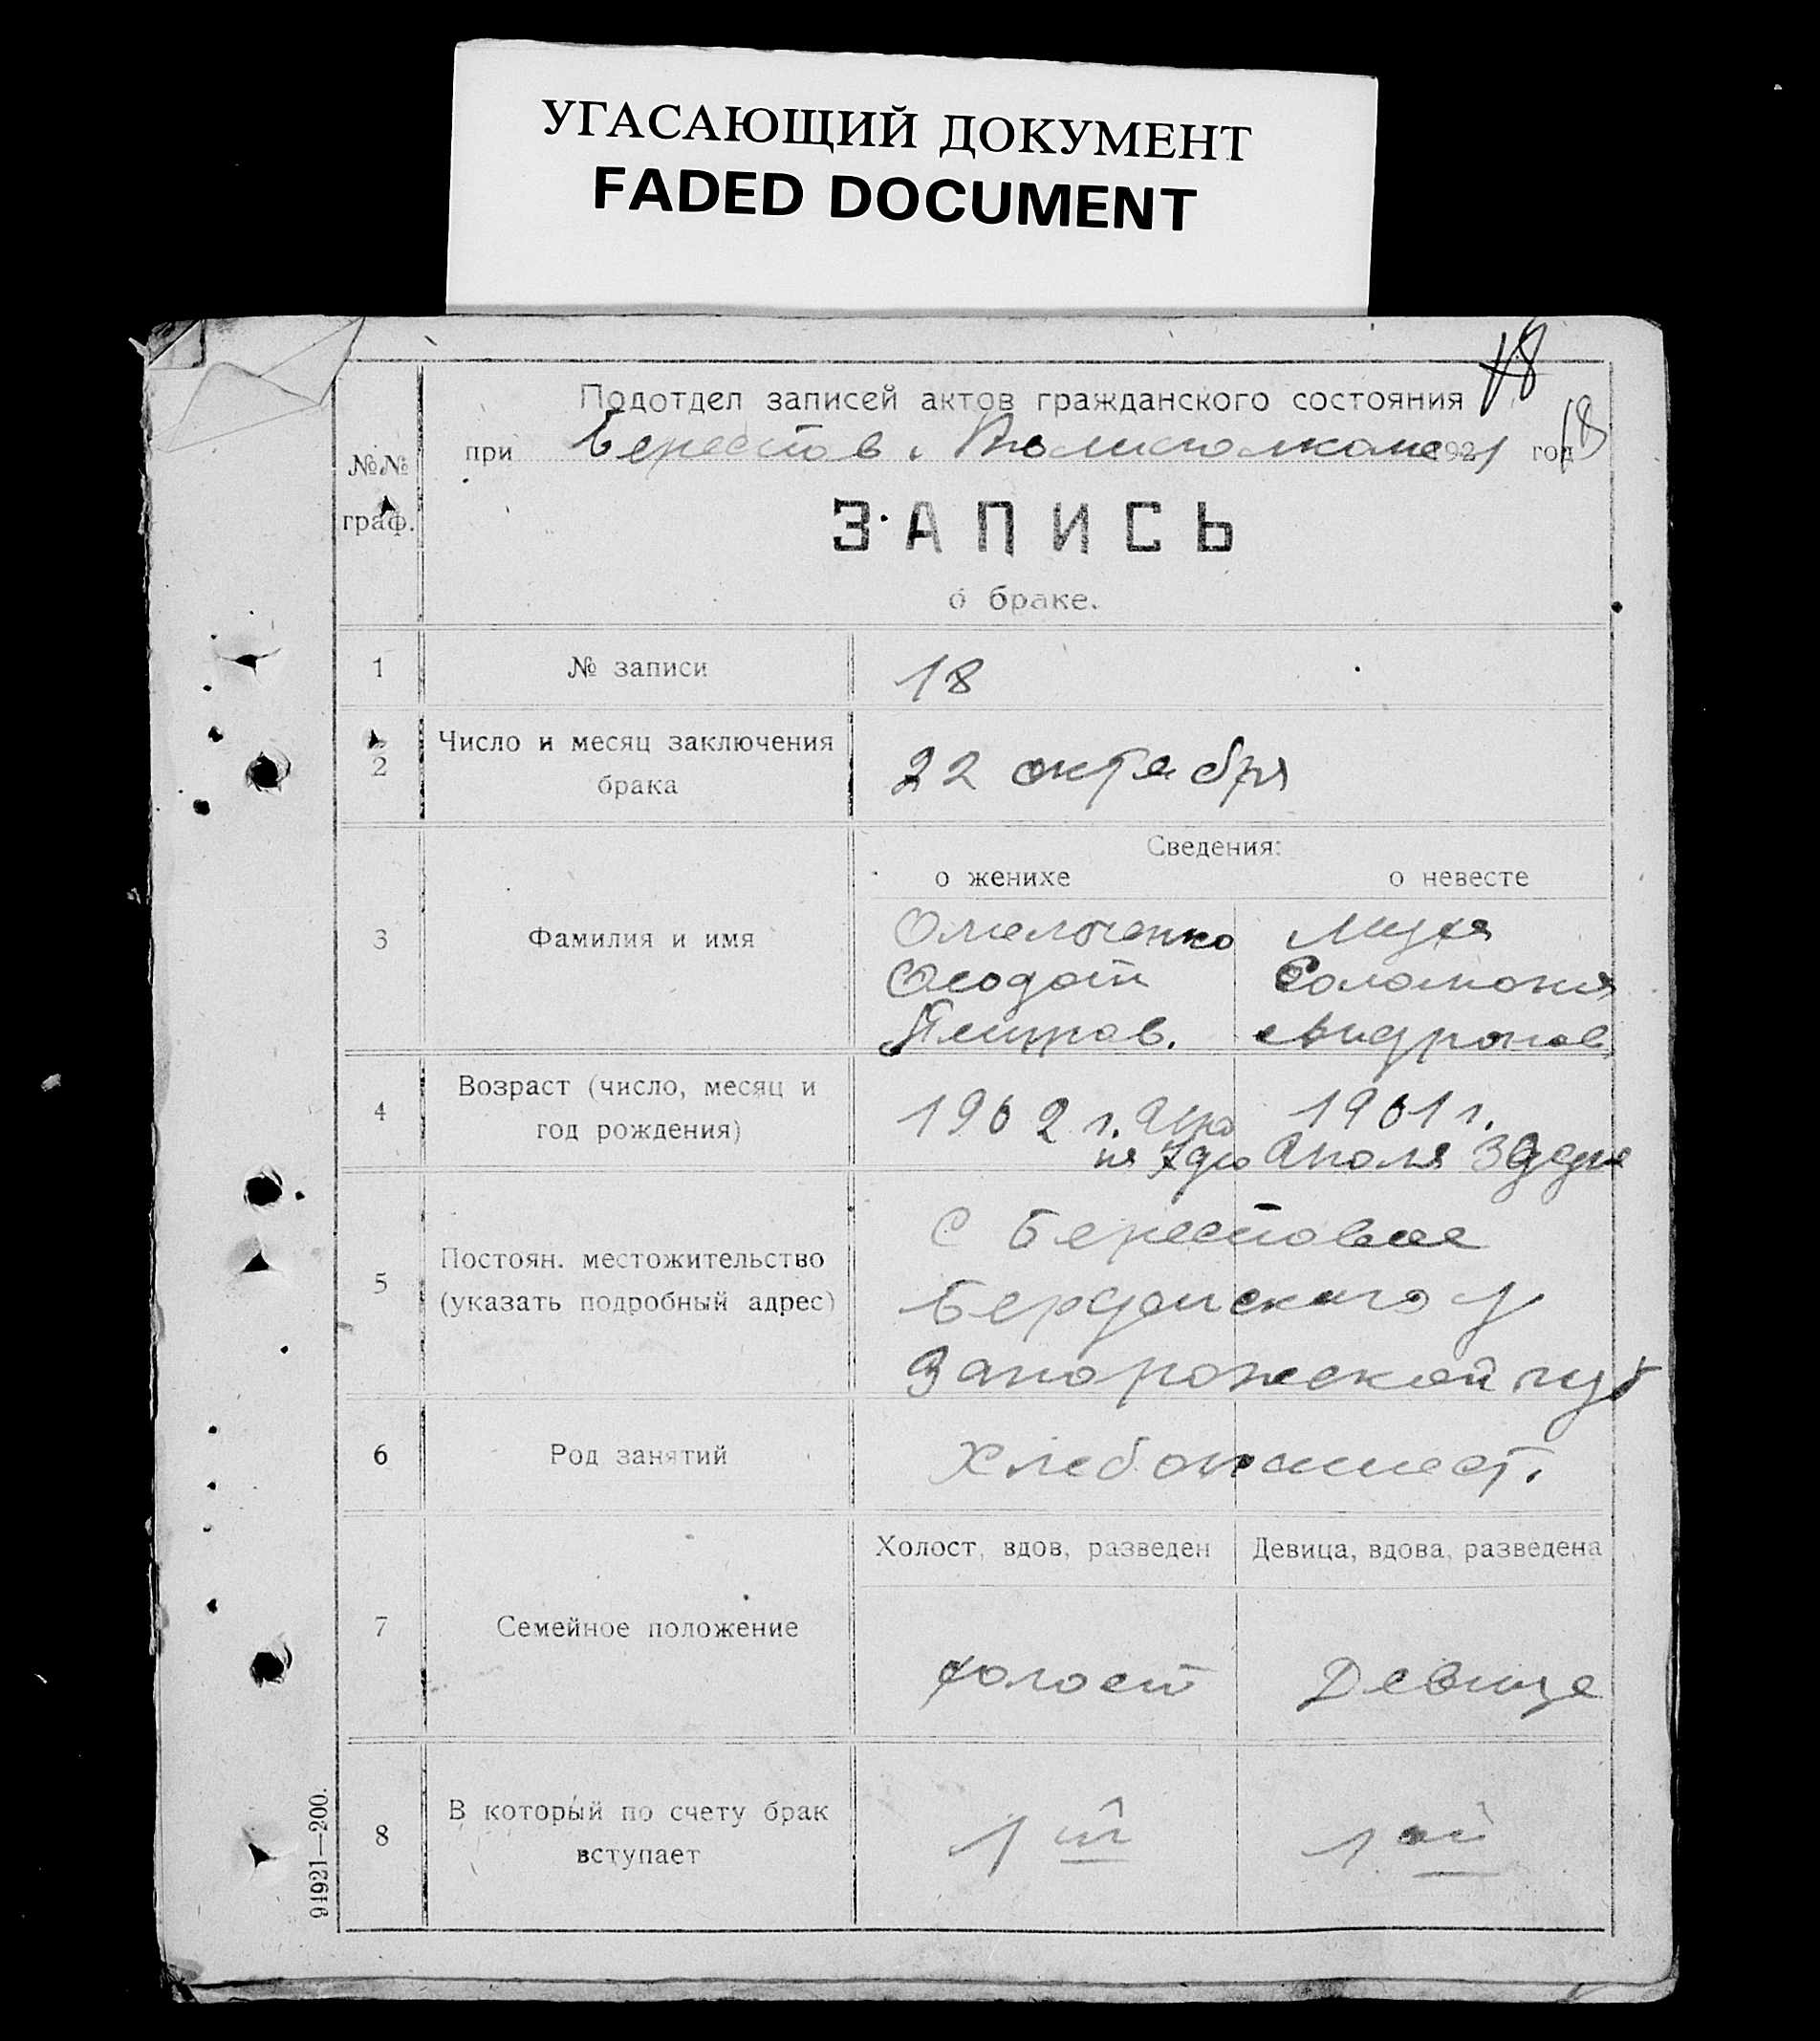 УГАСАЮЩИЙ ДОКУМЕНТ
FADED DOCUMENT
18
Подотдел записей актов гражданского состояния
№№ граф.
при Берестов. Волисполкоме 1921 год 18
ЗАПИСЬ
о браке.
1 № записи 18
2 Число и месяц заключения брака 22 октября
Сведения:
о женихе о невесте
3 Фамилия и имя
Омельченко Муха
Феодот Соломония
Петров. Андронов.
4 Возраст (число, месяц и год рождения)
1902 г. 1901 г.
5 Постоян. местожительство (указать подробный адрес)
С Берестовое
Бердянского у
Запорожской губ
6 Род занятий Хлебопашест.
Холост, вдов, разведен Девица, вдова, разведена
7 Семейное положение
холост Девица
8 В который по счету брак вступает
1 й 1 ый
94921—200.